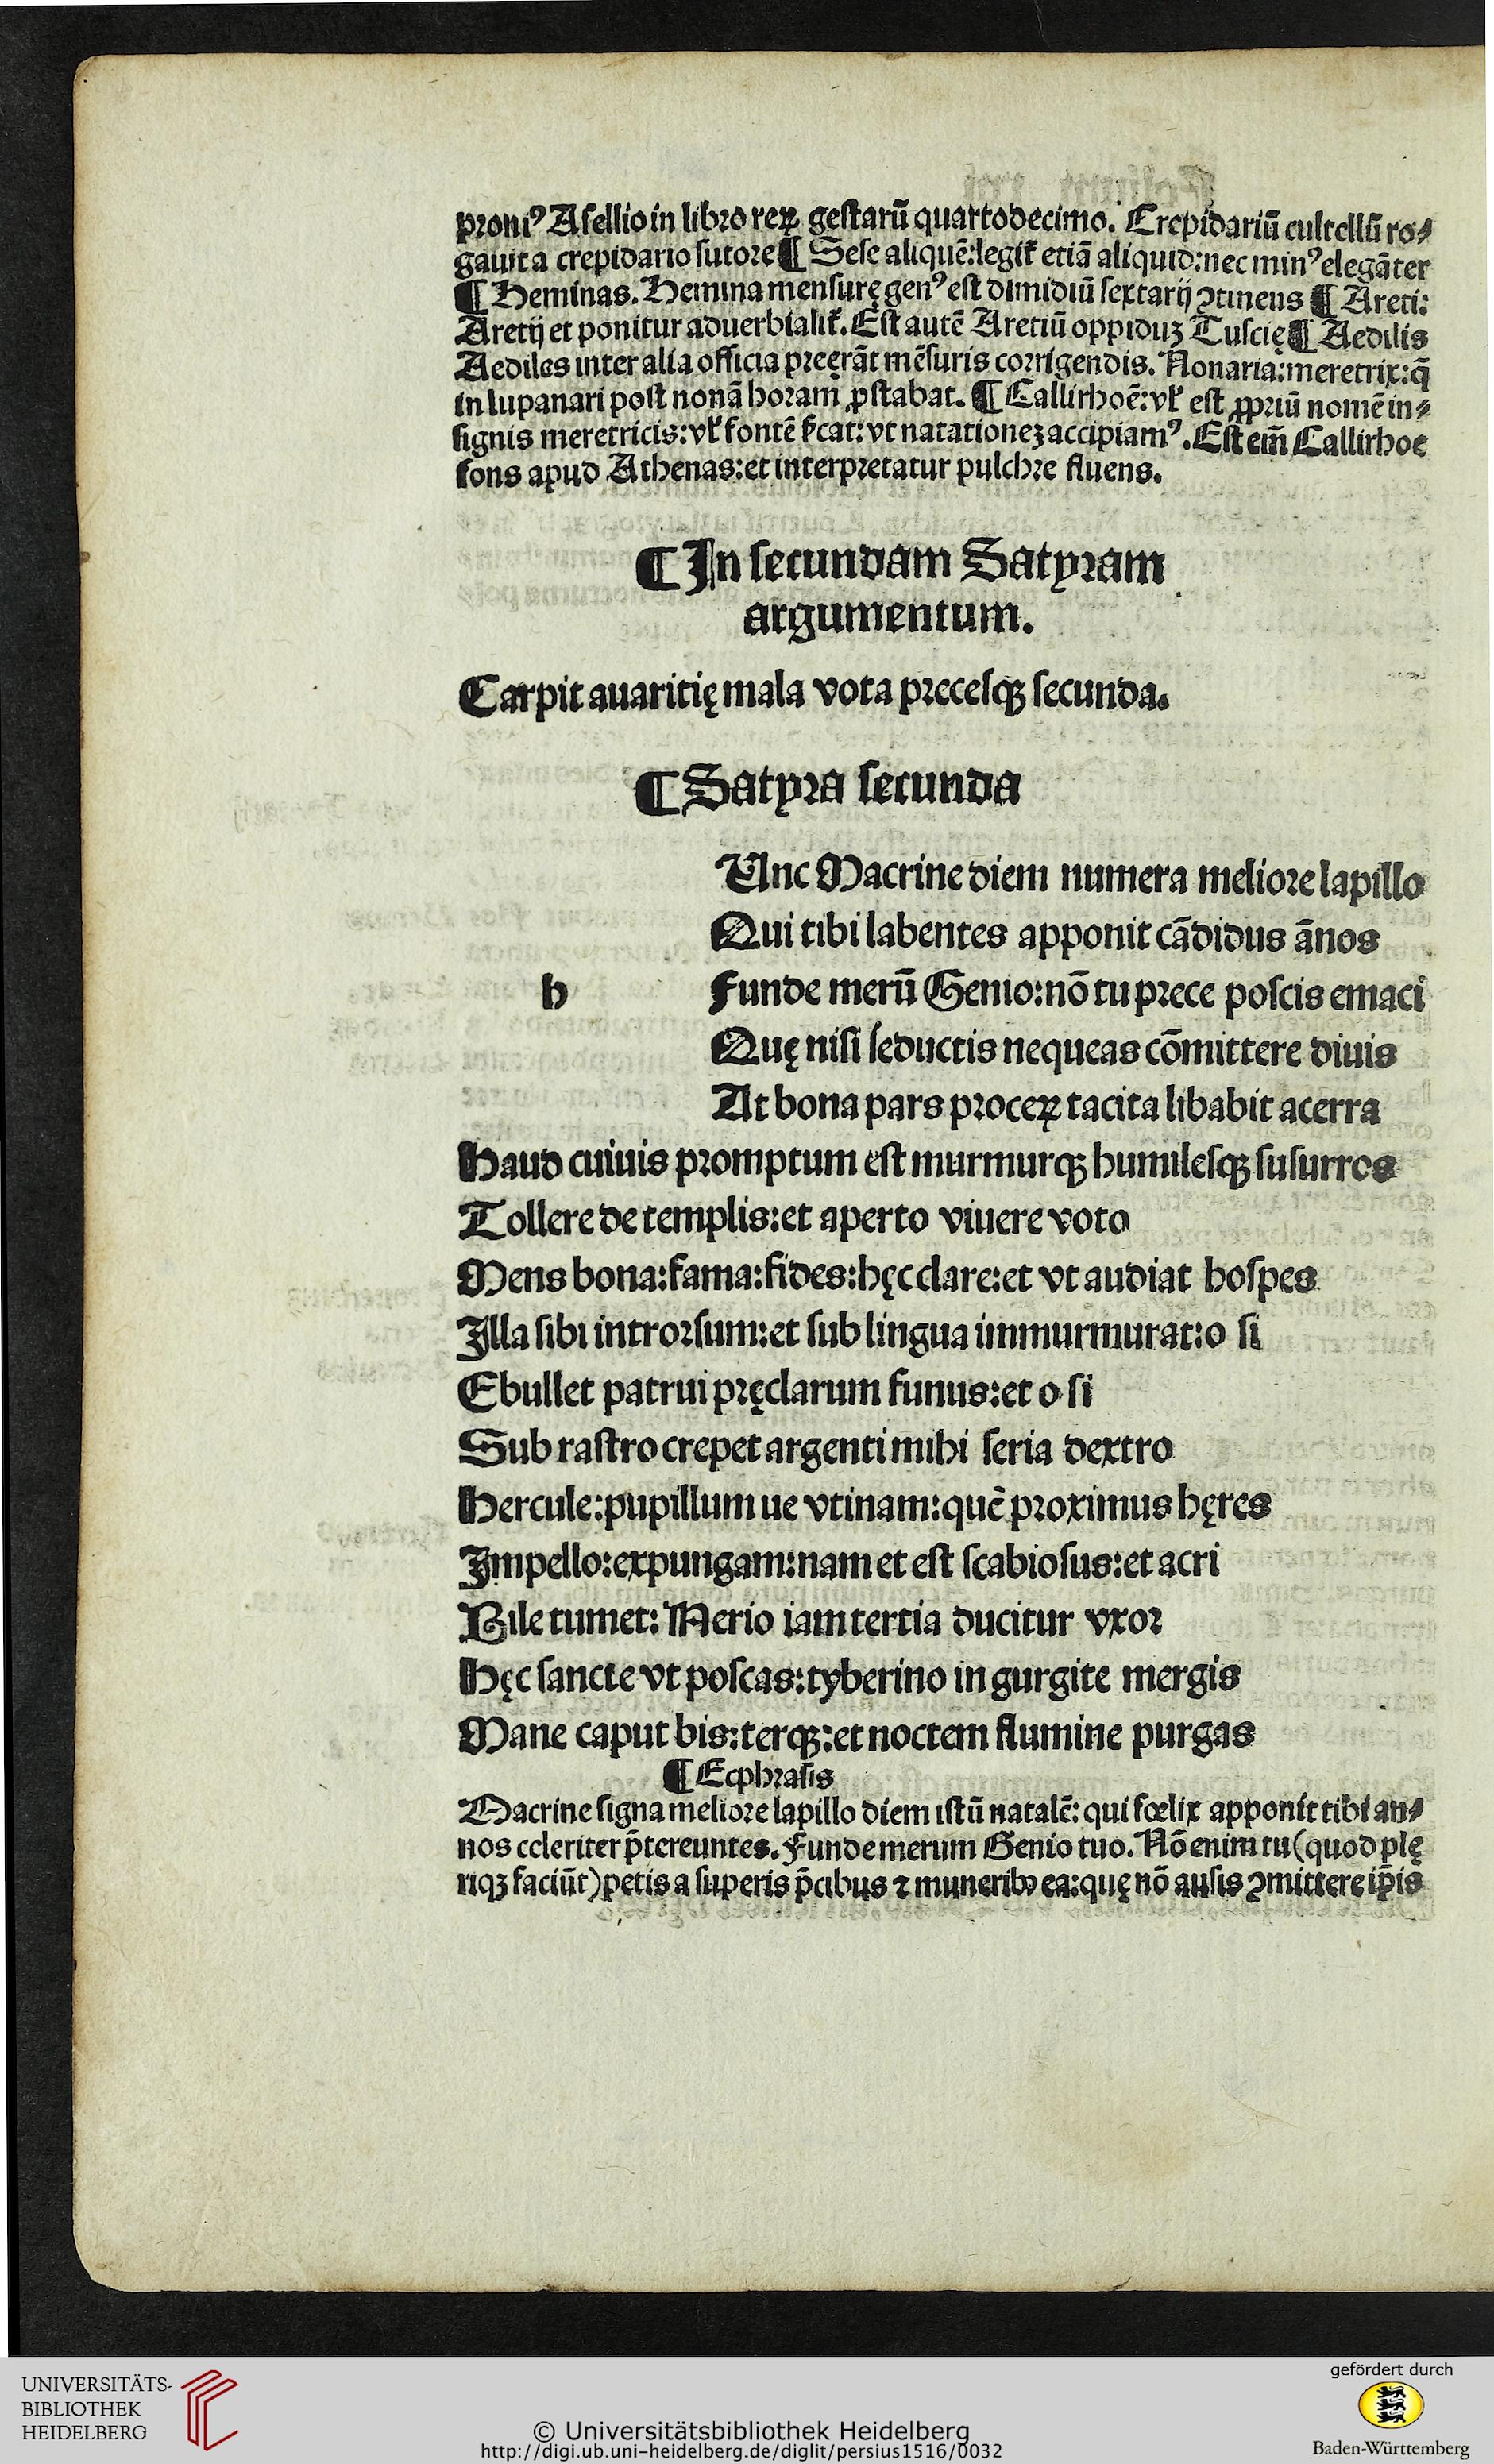 proniꝰ Asellio in libro reꝝ gestarū quartodecimo. Crepidariū cultellū ro⸗
gauit a crepidario sutore ¶ Sese aliquē: legit̄ etiā aliquid: nec minꝰ elegāter
¶ Heminas. Hemina mensurę genꝰ est dimidiū sextarij ꝯtinens ¶ Areti:
Aretij et ponitur aduerbialit̄. Est autē Aretiū oppiduꝫ Tuscię ¶ Aedilis
Aediles inter alia officia preerāt mēsuris corrigendis. Nonaria: meretrix: q̄
in lupanari post nonā horam ꝓstabat. ¶ Callirhoē: vl̄ est ꝓpriū nomē in⸗
signis meretricis: vl̄ fontē s̄cat: vt natationeꝫ accipiamꝰ. Est em̄ Callirhoe
fons apud Athenas: et interpretatur pulchre fluens.
¶ In secundam Satyram
argumentum.
Carpit auaritię mala vota precesqꝫ secunda.
¶ Satyra secunda
Unc Macrine diem numera meliore lapillo
Qui tibi labentes apponit cādidus ānos
h Funde merū Genio: nō tu prece poscis emaci
Quę nisi seductis nequeas cōmittere diuis
At bona pars proceꝝ tacita libabit acerra
Haud cuiuis promptum est murmurqꝫ humilesqꝫ susurros
Tollere de templis: et aperto viuere voto
Mens bona: fama: fides: hęc clare: et vt audiat hospes
Illa sibi introrsum: et sub lingua immurmurat: o si
Ebullet patrui pręclarum funus: et o si
Sub rastro crepet argenti mihi seria dextro
Hercule: pupillum ue vtinam: quē proximus hęres
Impello: expungam: nam et est scabiosus: et acri
Bile tumet: Nerio iam tertia ducitur vxor
Hęc sancte vt poscas: tyberino in gurgite mergis
Mane caput bis: terqꝫ: et noctem flumine purgas
¶ Ecphrasis
Macrine signa meliore lapillo diem istū natalē: qui fœlix apponit tibi an⸗
nos celeriter p̄tereuntes. Funde merum Genio tuo. Nō enim tu (quod plę
riqꝫ faciūt) petis a superis p̄cibus ⁊ muneribꝰ ea: quę nō ausis ꝯmittere ip̄is
UNIVERSITÄTS-
BIBLIOTHEK
HEIDELBERG
© Universitätsbibliothek Heidelberg
http://digi.ub.uni-heidelberg.de/diglit/persius1516/0032
gefördert durch
Baden-Württemberg